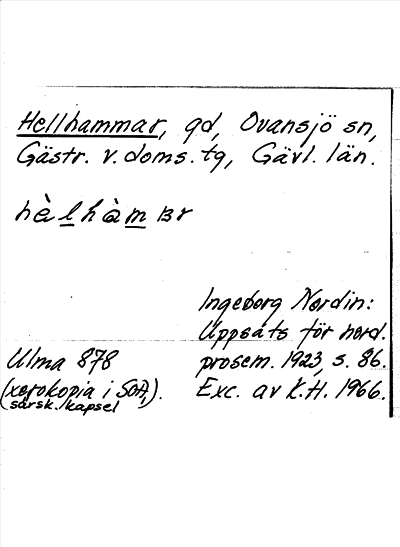 Hellhammar, gd, Ovansjö sn,
Gästr. v. doms. tg, Gävl. län.
hèlhàmɒr
Ingeborg Nordin:
Uppsats för nord.
prosem. 1923, s. 86.
Exc. av K.H. 1966.
Ulma 878
(xerokopia i SOA,
särsk. kapsel).